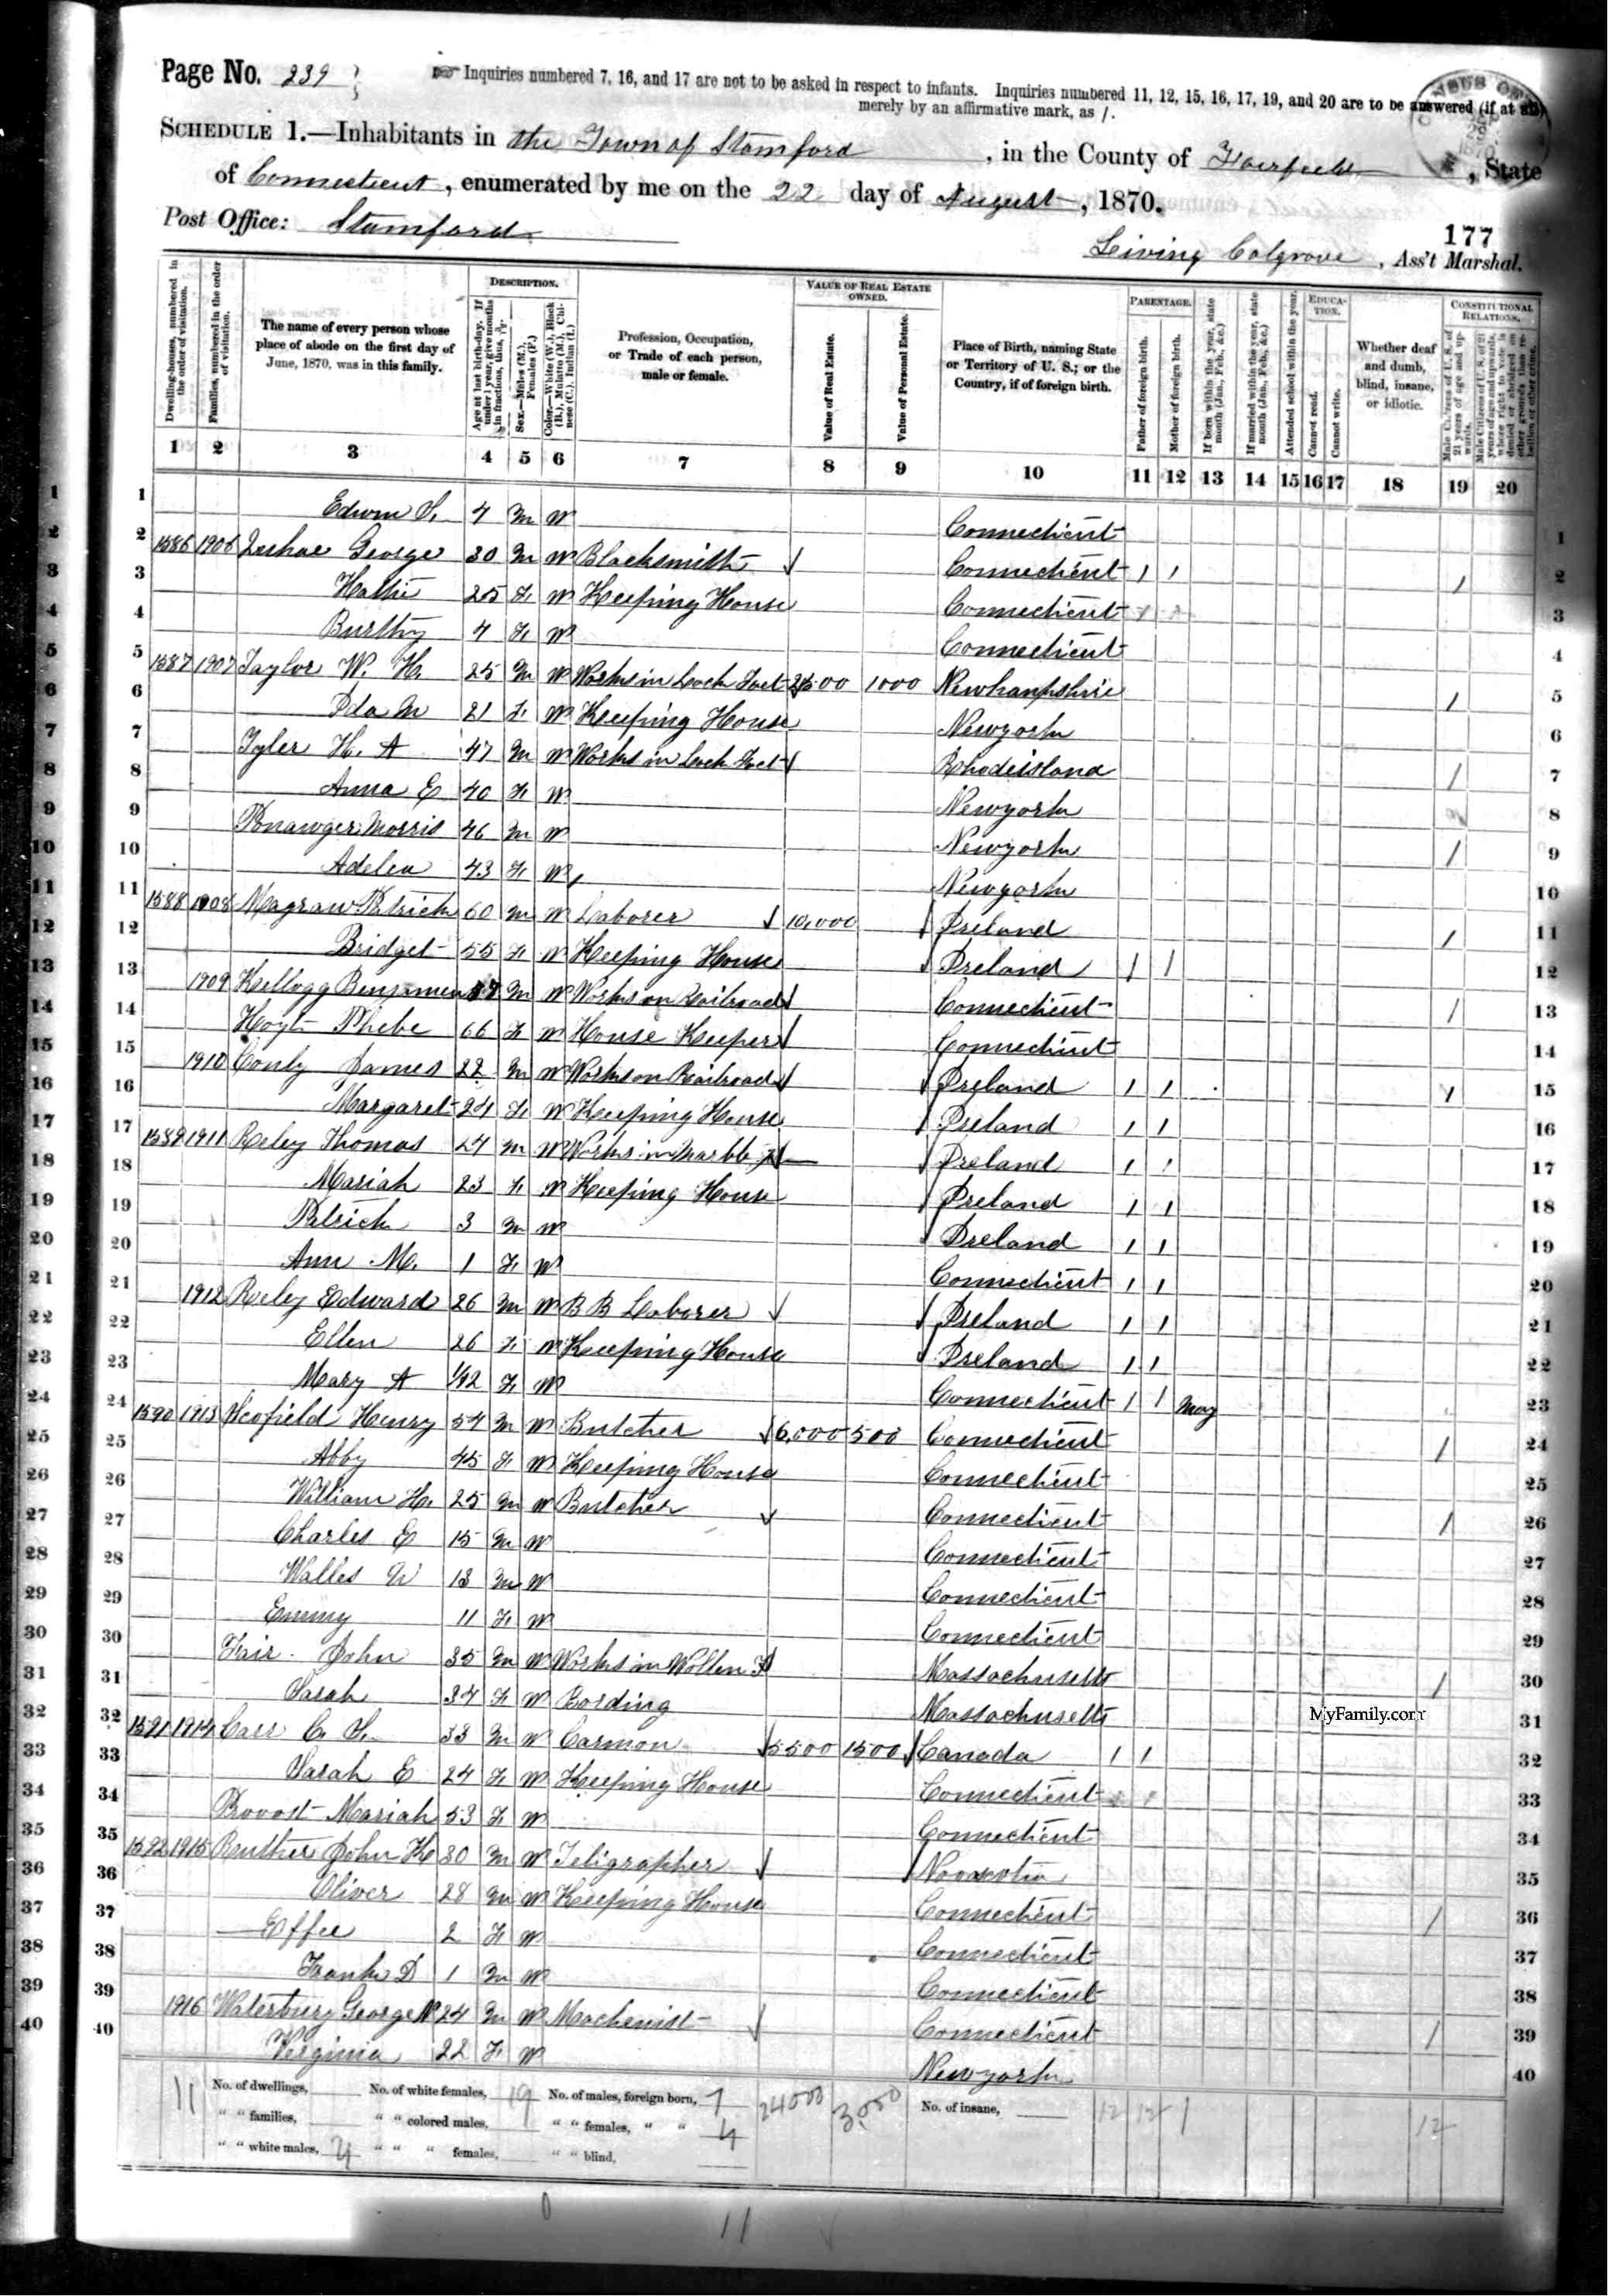 Page No. 239
Inquiries numbered 7, 16, and 17 are not to be asked in respect to infants. Inquiries numbered 11, 12, 15, 16, 17, 19, and 20 are to be answered (if at all)
merely by an affirmative mark, as /.
SCHEDULE 1.—Inhabitants in the Town of Stamford, in the County of Fairfield, State
of Connecticut, enumerated by me on the 22 day of August, 1870.
Post Office: Stamford
177
Colgrove, Ass't Marshal.
Dwelling-houses, numbered in the order of visitation.
Families, numbered in the order of visitation.
The name of every person whose place of abode on the first day of June, 1870, was in this family.
DESCRIPTION.
Age at last birth-day. If under 1 year, give months in fractions, thus,
Sex.—Males (M.), Females (F.)
Color.—White (W.), Black (B.), Mulatto (M.), Chinese (C.), Indian (I.)
Profession, Occupation, or Trade of each person, male or female.
VALUE OF REAL ESTATE OWNED.
Value of Real Estate.
Value of Personal Estate.
Place of Birth, naming State or Territory of U. S.; or the Country, if of foreign birth.
PARENTAGE.
Father of foreign birth.
Mother of foreign birth.
If born within the year, state month (Jan., Feb., &c.)
If married within the year, state month (Jan., Feb., &c.)
Attended school within the year.
EDUCATION.
Cannot read.
Cannot write.
Whether deaf and dumb, blind, insane, or idiotic.
CONSTITUTIONAL RELATIONS.
Male Citizens of U. S. of 21 years of age and upwards.
Male Citizens of U. S. of 21 years of age and upwards, where right to vote is denied or abridged on other grounds than rebellion or other crime.
1 2 3 4 5 6 7 8 9 10 11 12 13 14 15 16 17 18 19 20
1 Edwin S. 4 M W Connecticut
2 1586 1906 George 30 M W Blacksmith Connecticut 1 1 1
3 Hattie 25 F W Keeping House Connecticut
4 4 F W Connecticut
5 1587 1907 Taylor W. H. 25 M W Works in Lock Fact 2500 1000 Newhampshire 1
6 Ida M 21 F W Keeping House Newyork
7 Tyler H. A 47 M W Works in Lock Fact Rhodeisland 1
8 Anna E 40 F W Newyork
9 Morris 46 M W Newyork 1
10 Adelea 43 F W Newyork
11 1588 1908 Magraw Patrick 60 M W Laborer 10,000 Ireland 1
12 Bridget 55 F W Keeping House Ireland 1 1
13 1909 Kellogg Benjamen M W Works on Railroad Connecticut 1
14 Hoyt Phebe 66 F W House Keeper Connecticut
15 1910 Conly James 22 M W Works on Railroad Ireland 1 1 1
16 Margaret 24 F W Keeping House Ireland 1 1
17 1589 1911 Reley Thomas 24 M W Works in Marble Ireland 1 1
18 Mariah 23 F W Keeping House Ireland 1 1
19 Patrick 3 M W Ireland 1 1
20 Ann M. 1 F W Connecticut 1 1
21 1912 Reley Edward 26 M W R R Laborer Ireland 1 1
22 Ellen 26 F W Keeping House Ireland 1 1
23 Mary A F W Connecticut 1 1 May
24 1590 1913 Scofield Henry 54 M W Butcher 6,000 500 Connecticut 1
25 Abby 45 F W Keeping House Connecticut
26 William H. 25 M W Butcher Connecticut 1
27 Charles E 15 M W Connecticut
28 Walles W 13 M W Connecticut
29 Emmy 11 F W Connecticut
30 Fair John 35 M W Works in Wollen F Massachusetts 1
31 Sarah 34 F W Bording Massachusetts
MyFamily.com
32 1591 1914 Carr C. S. 33 M W Carmon 5500 1500 Canada 1 1
33 Sarah E 24 F W Keeping House Connecticut
34 Provost Mariah 53 F W Connecticut
35 1592 1915 John H 30 M W Teligrapher Novascotia
36 Oliver 28 M W Keeping House Connecticut 1
37 Effee 2 F W Connecticut
38 Frank D 1 M W Connecticut
39 1916 Waterbury George N 24 M W Machenist Connecticut 1
40 Virginia 22 F W Newyork
11 No. of dwellings, No. of white females, 19 No. of males, foreign born, 7 24000 3,000 No. of insane, 12 12 1 12
" " families, " " colored males, " " females, " " 4
" " white males, " " " females, " " blind,
11